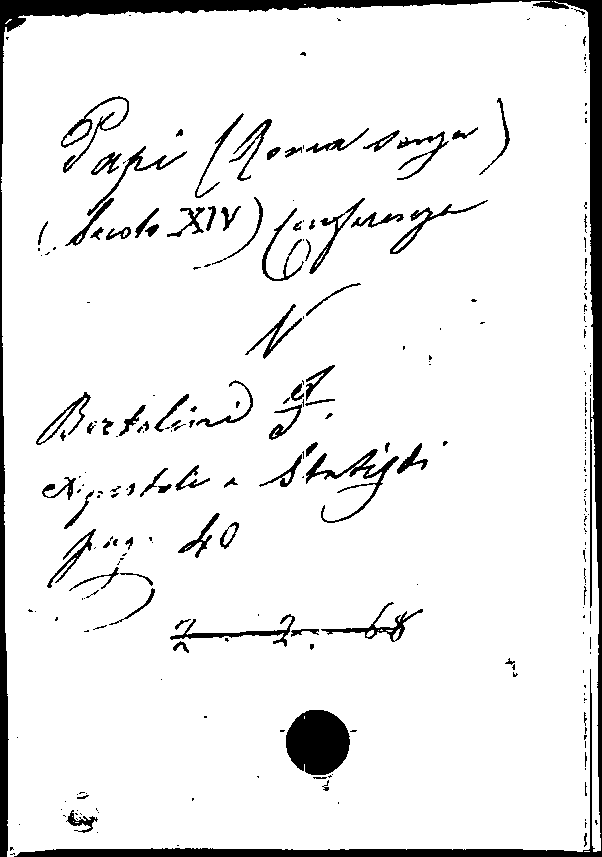 Papi (Roma senza)
(Secolo XIV) Conferenza
N
Bertolini F.
Apostoli e Statisti
pag. 40
2. 2. 68